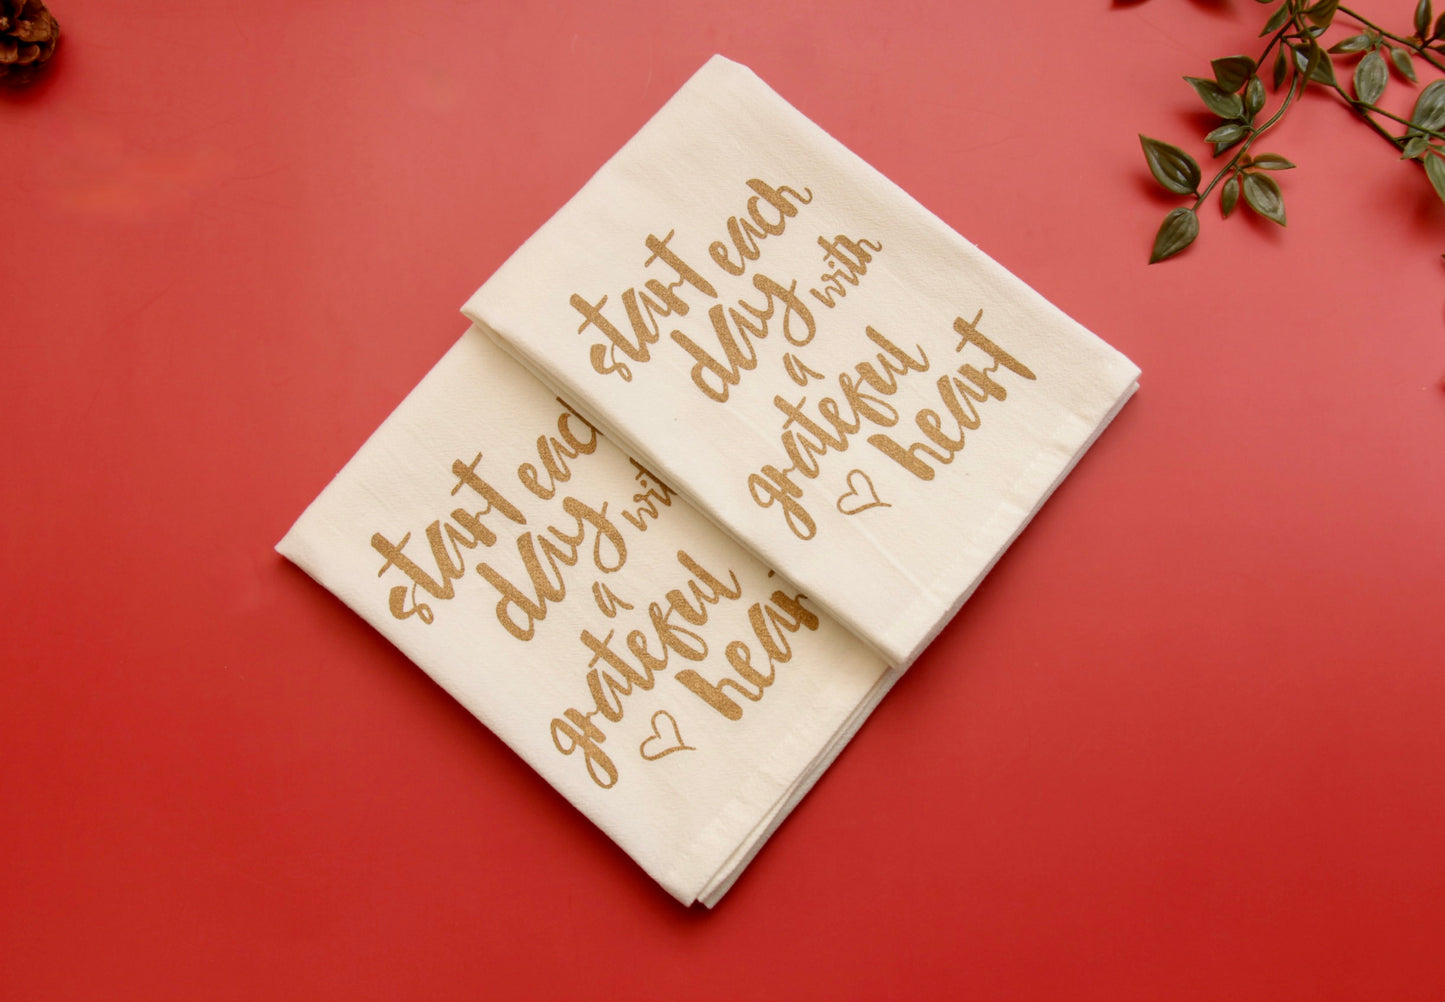 start each
day with
a
grateful
heart
start each
day with
a
grateful
heart